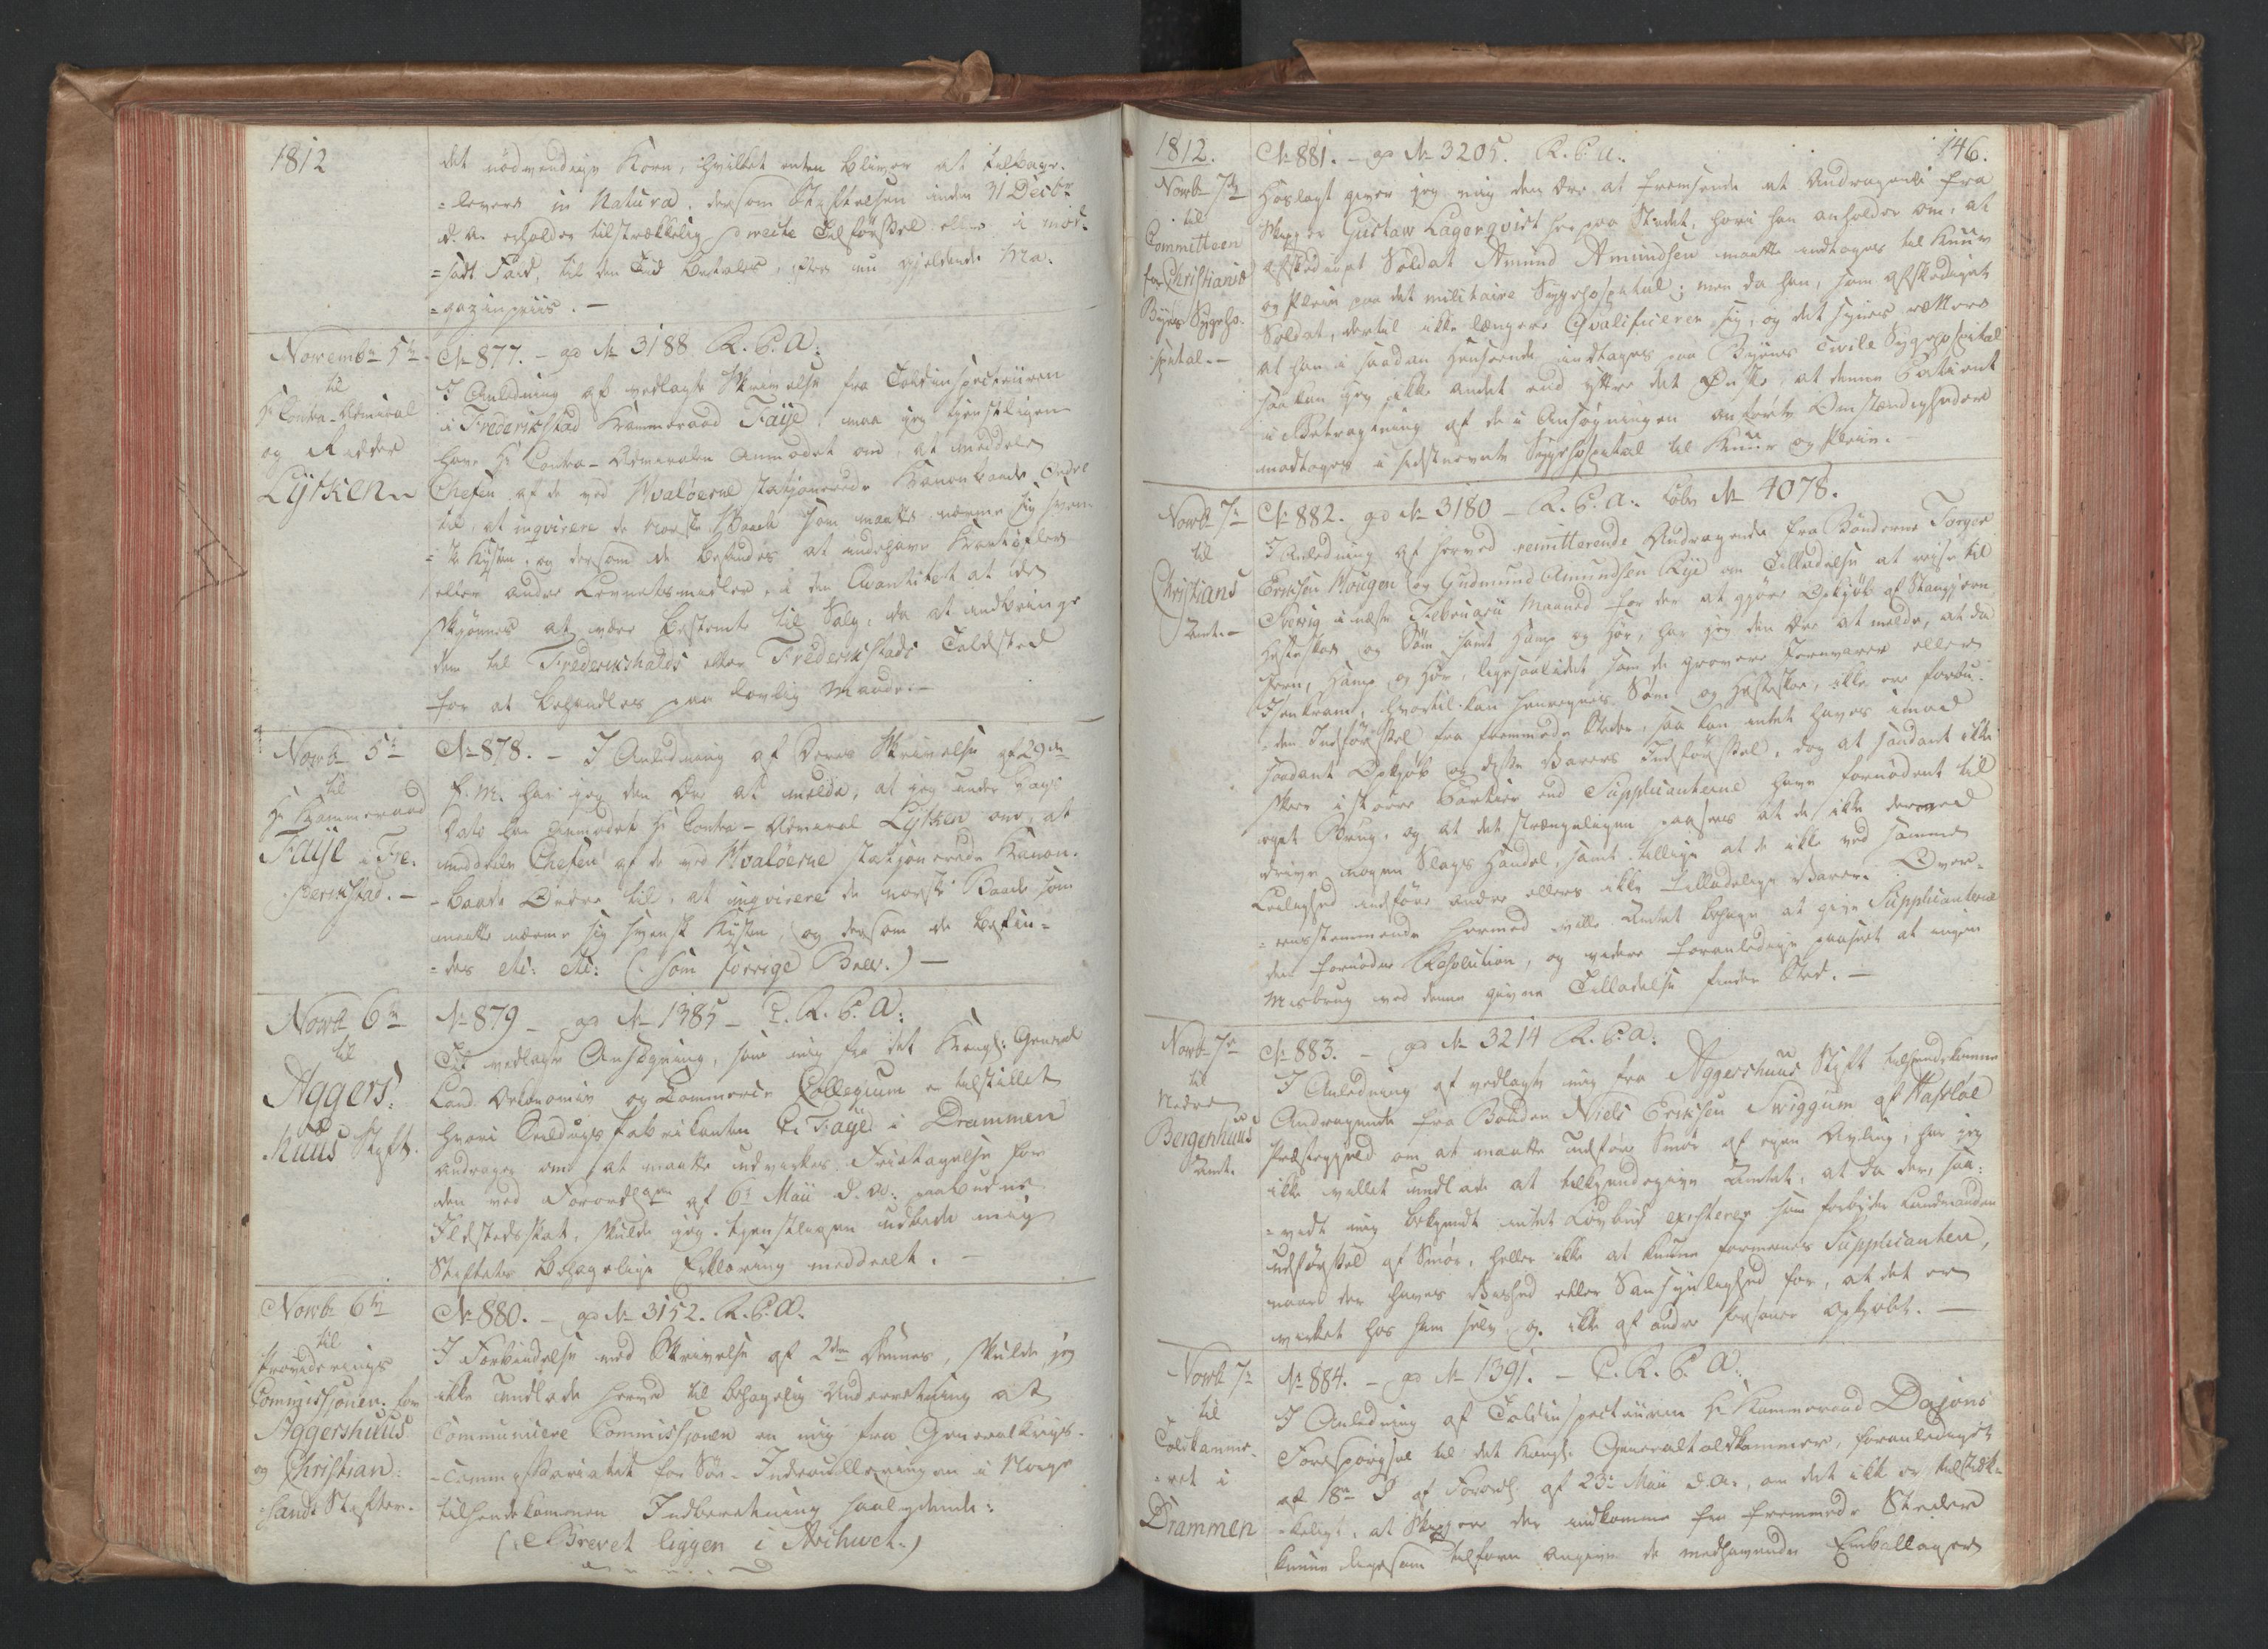 1812
det nödvendige Korn, hvilket enten bliver at tilbage-
=levere in Natura, dersom Stiftelsen inden 31 Decbr
d. A. erholder tilstrækkelig Tilförsel eller i mod-
=sadt Fald, til den Tid betales, efter nu gjeldende Ma-
=gazinpriis. –
Novembr 5te
til
Hr Contra-Admiral
og Ridder
Lütken
No 877. – ad No 3188 R. P. A:
I Anledning af vedlagte Skrivelse fra Toldinspecteuren
i Friderikstad Kammeraad Faÿe, maa jeg tjenstligen
have Hr Contra-Admiralen Anmodet om, at meddele
Chefen af de ved Hvalöerne stasjonerede Kanonbaade Ordre
til, at inqvirere de norske Baade som maatte nærme sig sven-
=ske Kysten, og dersom de befindes at indehave Kartofler
eller andre Levnetsmidler, i den Qvantitet at de
skjönnes at være bestemte til Salg, da at indbringe
dem til Frederikshalds eller Frederikstads Toldsted
for at behandles paa lovlig Maade. –
Novb 5te
til
Hr Kammeraad
Faÿe i Fre-
=derikstad. –
No 878. – I Anledning af Deres Skrivelse af 29de
f. M. har jeg den Ære at melde, at jeg under Dags
Dato har anmodet Hr Contra-Admiral Lütken om, at
meddele Chefen af de ved Hvalöerne stasjonerede Kanon-
-baade Ordre til, at inqvirere de norske Baade som
maatte nærme sig svensk Kysten, og dersom de befin-
=des etc: etc: (: som forrige Brev.) –
Novb 6te
til
Aggers-
huus Stift.
No 879 – ad No 1385 – T. R. P. A:
Til vedlagte Ansögning, som mig fra det Kongl: General
Land Oekonomie og Commerce Collegium er tilstillet
hvori Seildugsfabrikanten C. Faÿe i Drammen
andrager om at maatte udvirkes Fritagelse for
den ved Forordgen af 6te Maii d. A. paabudne
Ildstedsskat, skulde jeg tjenstligen udbede mig
Stiftets behagelige Erklæring meddeelt. –
Novb 6te
til
Provideerings
Commissjonen for
Aggershuus
og Christian-
sands Stifter.
No 880. – ad No 3152. R. P. A.
I Forbindelse med Skrivelse af 2den Dennes, skulde jeg
ikke undlade herved til behagelig Underretning at
Communicere Commissjonen en mig fra Generalkrigs-
-Commissariatet for Söe-Indrulleringen i Norge
tilhændekommen Indberetning saalydende:
(: Brevet ligger i Archivet:)
1812.
146.
Novb 7de
til
Committeen
for Christiania
Byes Sygeho-
spital. –
No 881. – ad No 3205. R. P. A:
Hoslagt giver jeg mig den Ære at fremsende et Andragende fra
Skipper Gustaw Lagerqvist her paa Stedet, hvori han anholder om, at
afskediget Soldat Amund Amundsen maatte indtages til Kuur
og Pleie paa det militaire Sygehospital; men da han, som afskediget
Soldat, dertil ikke længere Qvalificerer sig, og det synes rettere
at han i saadan Henseende indtages paa Byens Civile Sygehospital
saa kan jeg ikke andet end yttre det Ønske, at denne Patient
i Betragtning af de i Ansögningen anförte Omstændigheder
modtages i sidstnevnte Sygehospital til Kuur og Pleie. –
Novb 7de
til
Christians
Amt. –
No 882. ad No 3180 – R. P. A: Löbe No 4078.
I Anledning af herved remitterende Andragende fra Bönderne Torger
Eriksen Hougen og Gudmund Amundsen Rÿe om Tilladelse at reise til
Sverig i næste Februarii Maaned for der at gjöre Opkjöb af Stangjern
Hesteskoe og Söm samt Hamp og Hör, har jeg den Ære at melde, at da
Jern, Hamp og Hör, ligesaalidet som de grovere Jernvarer eller
Isenkram, hvortil kan henregnes Söm og Hesteskoe, ikke ere forbu-
=den Indförsel fra fremmede Steder, saa kan intet haves imod
saadant Opkjöb og disse Varers Indförsel, dog at saadant ikke
skeer i större Partier end Supplicanterne have fornödent til
eget Brug, og at det strængeligen paasees at de ikke dermed
drive nogen Slags Handel, samt tillige at de ikke ved samme
Leilighed indföre andre ellers ikke tilladelige Varer. Over-
=eensstemmende hermed ville Amtet behage at give Supplicanterne
den fornödne Resolution, og videre foranledige paaseet at ingen
Misbrug ved denne givne Tilladelse finder Sted. –
Novb 7de
til
Nedre
Bergenhuus
Amt.
No 883. – ad No 3214 R. P. A:
I Anledning af vedlagte mig fra Aggershuus Stift tilhændekomne
Andragende fra Bonden Niels Eriksen Swiggum af Hafsloe
Præstegjeld om at maatte udföre Smör af egen Avling, har jeg
ikke villet undlade at tilkjendegive Amtet, at da der, saa-
=vidt mig bekjendt intet Lovbud existerer som forbyder Landmanden
udförsel af Smör, heller ikke at kunne formenes Supplicanten,
naar der haves Vished eller Sansynlighed for, at det er
virket hos ham selv og ikke af andre Personer opkjöbt. –
Novb 7de
til
Toldkamme-
-ret i
Drammen
No 884. – ad No 1391. – T. R. P. A:
I Anledning af Toldinspecteuren Hr Kammeraad Dajons
Forespörgsel til det Kongl: Generaltoldkammer, foranlediget
af 18de § af Forordn af 23de Maii d. A., om det ikke er tilstræk-
=keligt, at Skippere der indkomme fra fremmede Steder
kunne ligesom tilforn angive de medhavende Emballager